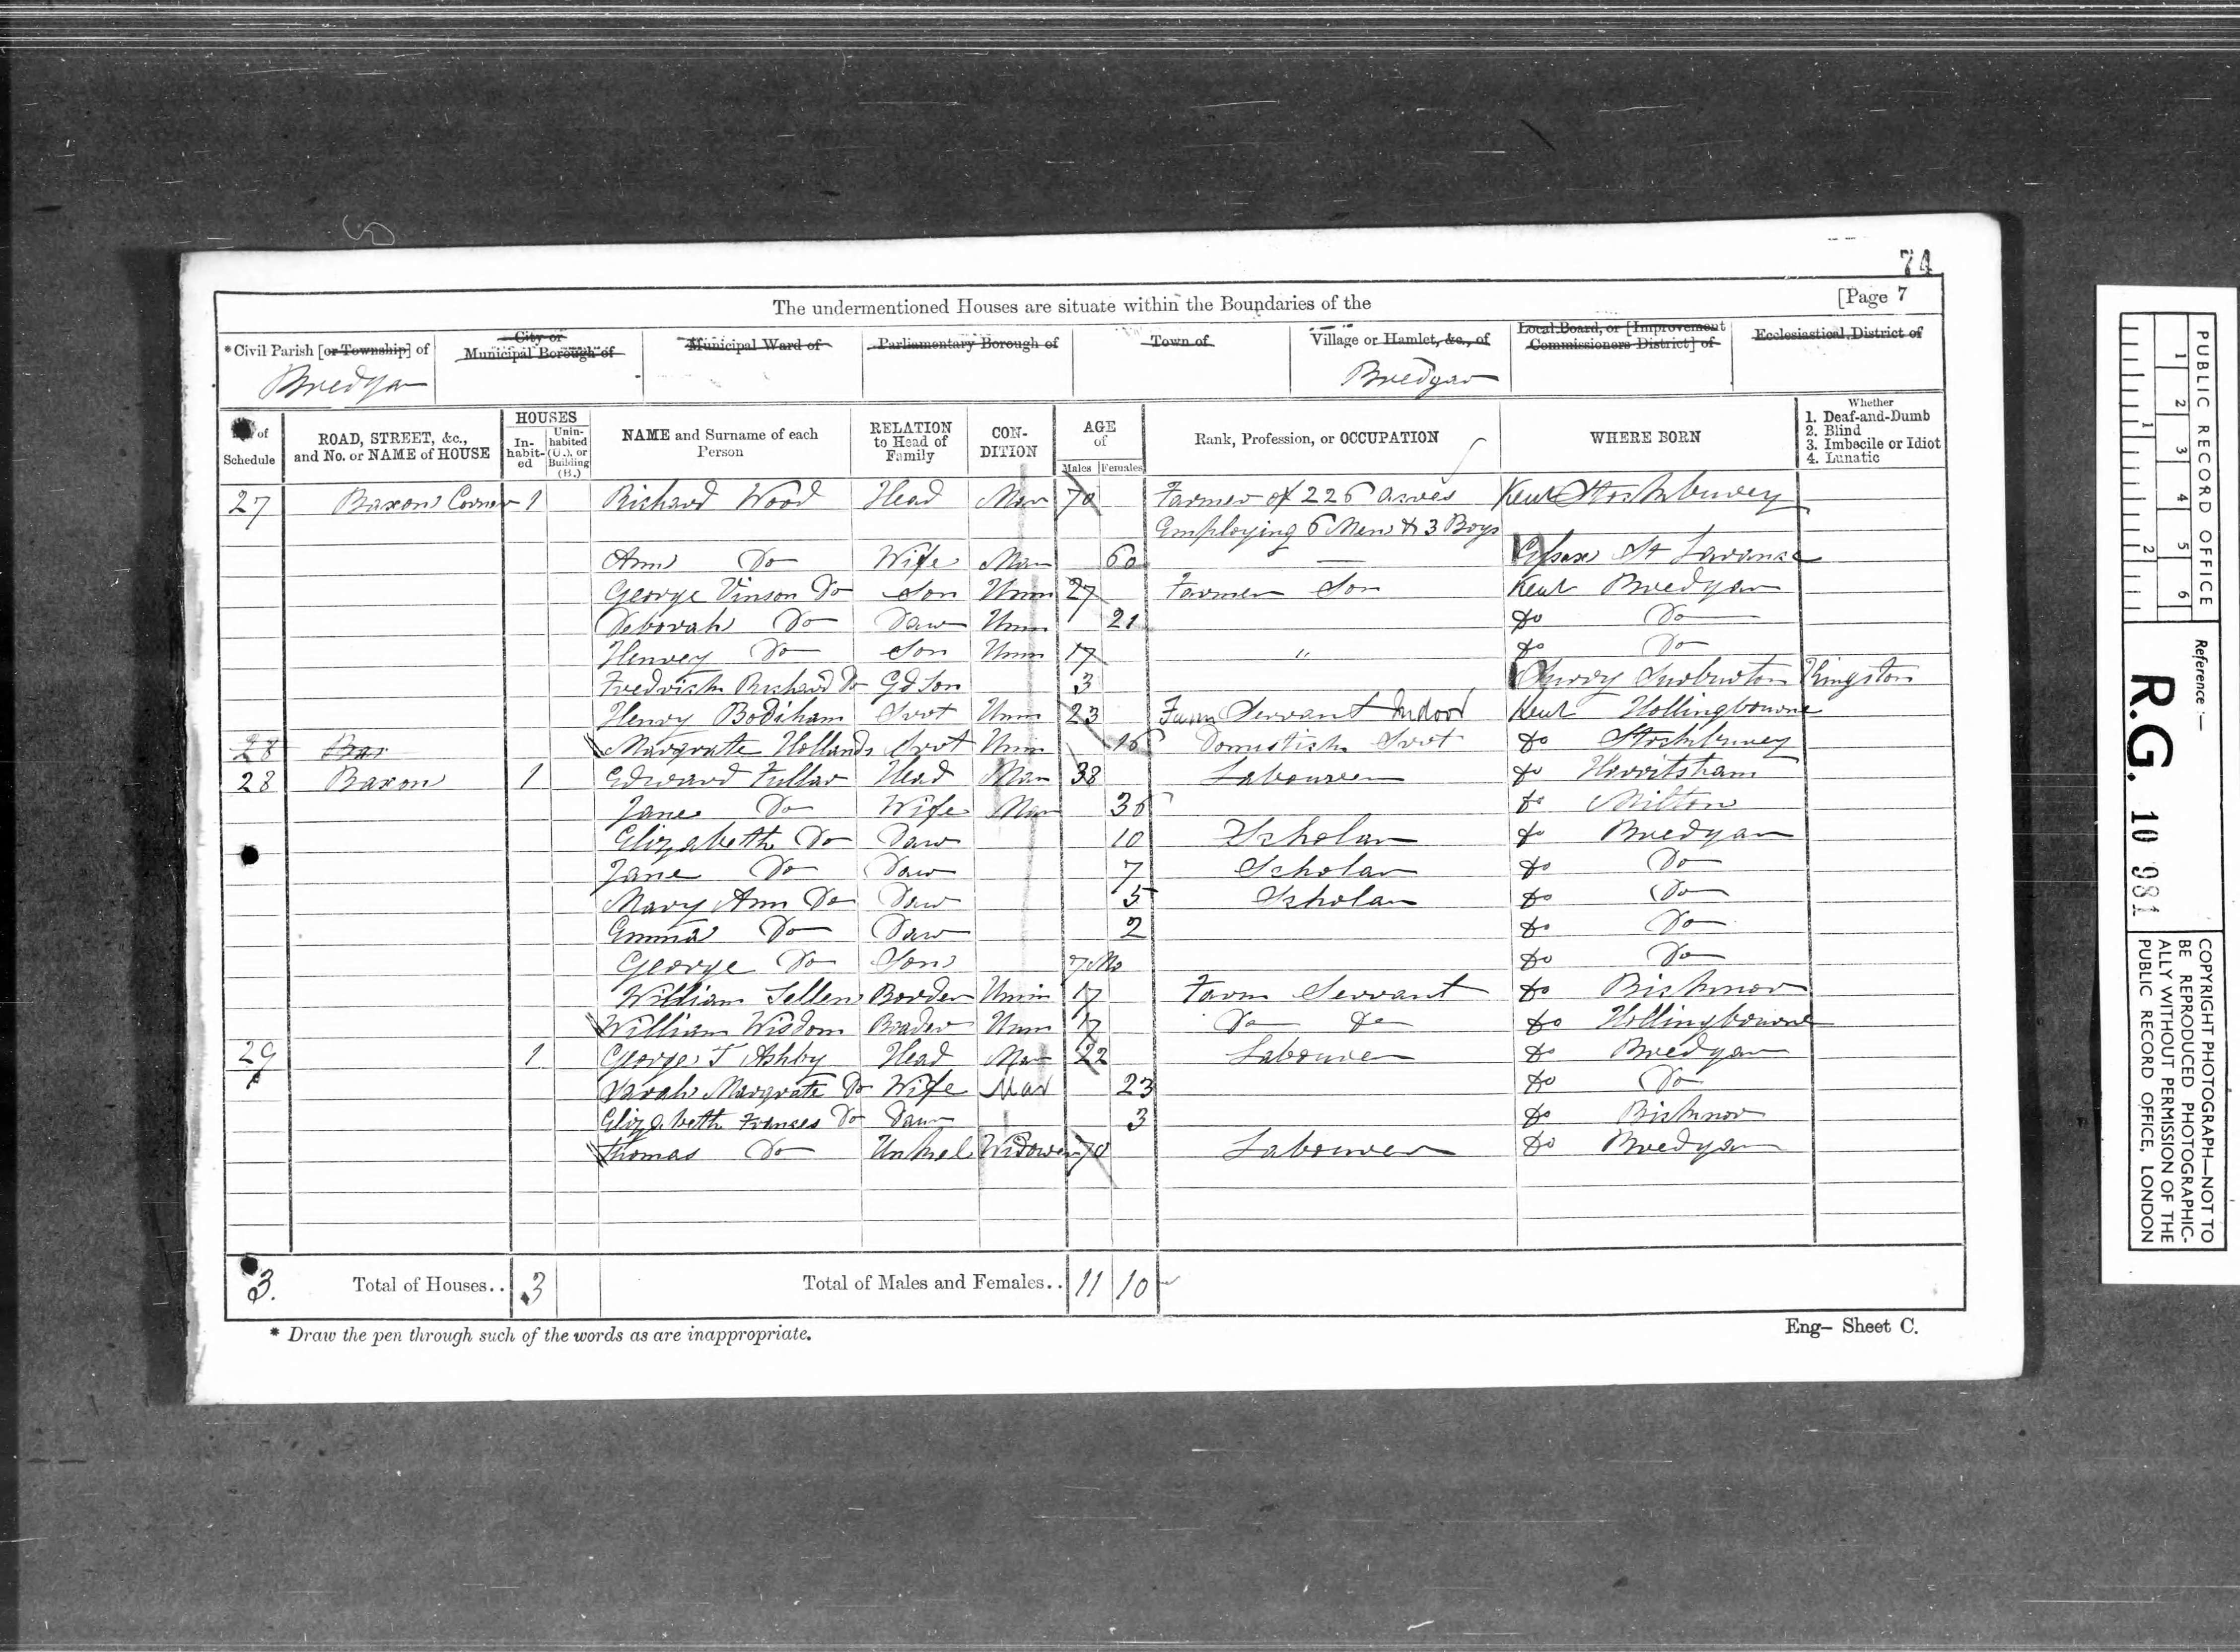 74
The undermentioned Houses are situate within the Boundaries of the [Page 7
*Civil Parish [or Township] of City or Municipal Borough of Municipal Ward of Parliamentary Borough of Town of Village or Hamlet, &c., of Local Board, or [Improvement Commissioners District] of Ecclesiastical District of
Bredgar Bredgar
of Schedule ROAD, STREET, &c., and No. or NAME of HOUSE HOUSES In-habit-ed Unin-habited (U.), or Building (B.) NAME and Surname of each Person RELATION to Head of Family CON-DITION AGE of Males Females Rank, Profession, or OCCUPATION WHERE BORN Whether 1. Deaf-and-Dumb 2. Blind 3. Imbecile or Idiot 4. Lunatic
27 Baxon Corner 1 Richard Wood Head Mar 70 Farmer of 226 Acres Kent Stockburey
Employing 6 Men & 3 Boys
Ann Do Wife Mar 60 — Essex St Lawrance
George Vinson Do Son Unm 27 Farmer Son Kent Bredgar
Deborah Do Daw Unm 21 Do Do
Henrey Do Son Unm 17 " Do Do
Fredrick Richard Do Gd Son 3 Surrey Surburton Kingston
Henry Bodiham Srvt Unm 23 Farm Servant Indoor Kent Hollingbourne
28 Bax Margrate Hollands Srvt Unm 16 Domestick Srvt Do Stockburey
28 Baxon 1 Edward Fullar Head Mar 38 Labourer Do Harritsham
Jane Do Wife Mar 36 Do Milton
Elizabeth Do Daw 10 Scholar Do Bredgar
Jane Do Daw 7 Scholar Do Do
Mary Ann Do Daw 5 Scholar Do Do
Emma Do Daw 2 Do Do
George Do Son 7 Mo Do Do
William Sellen Border Unm 17 Farm Servant Do Bicknor
William Wisdom Boader Unm 17 Do Do Do Hollingbourne
29 1 George T Ashby Head Mar 22 Labourer Do Bredgar
Sarah Margrate Do Wife Mar 23 Do Do
Elizabeth Franses Do Daw 3 Do Bicknor
Thomas Do Unkel Widower 70 Labourer Do Bredgar
3. Total of Houses.. 3 Total of Males and Females.. 11 10
* Draw the pen through such of the words as are inappropriate. Eng- Sheet C.
PUBLIC RECORD OFFICE
1 2 3 4 5 6
1 2
Reference:—
R.G. 10 981
COPYRIGHT PHOTOGRAPH—NOT TO
BE REPRODUCED PHOTOGRAPHIC-
ALLY WITHOUT PERMISSION OF THE
PUBLIC RECORD OFFICE, LONDON